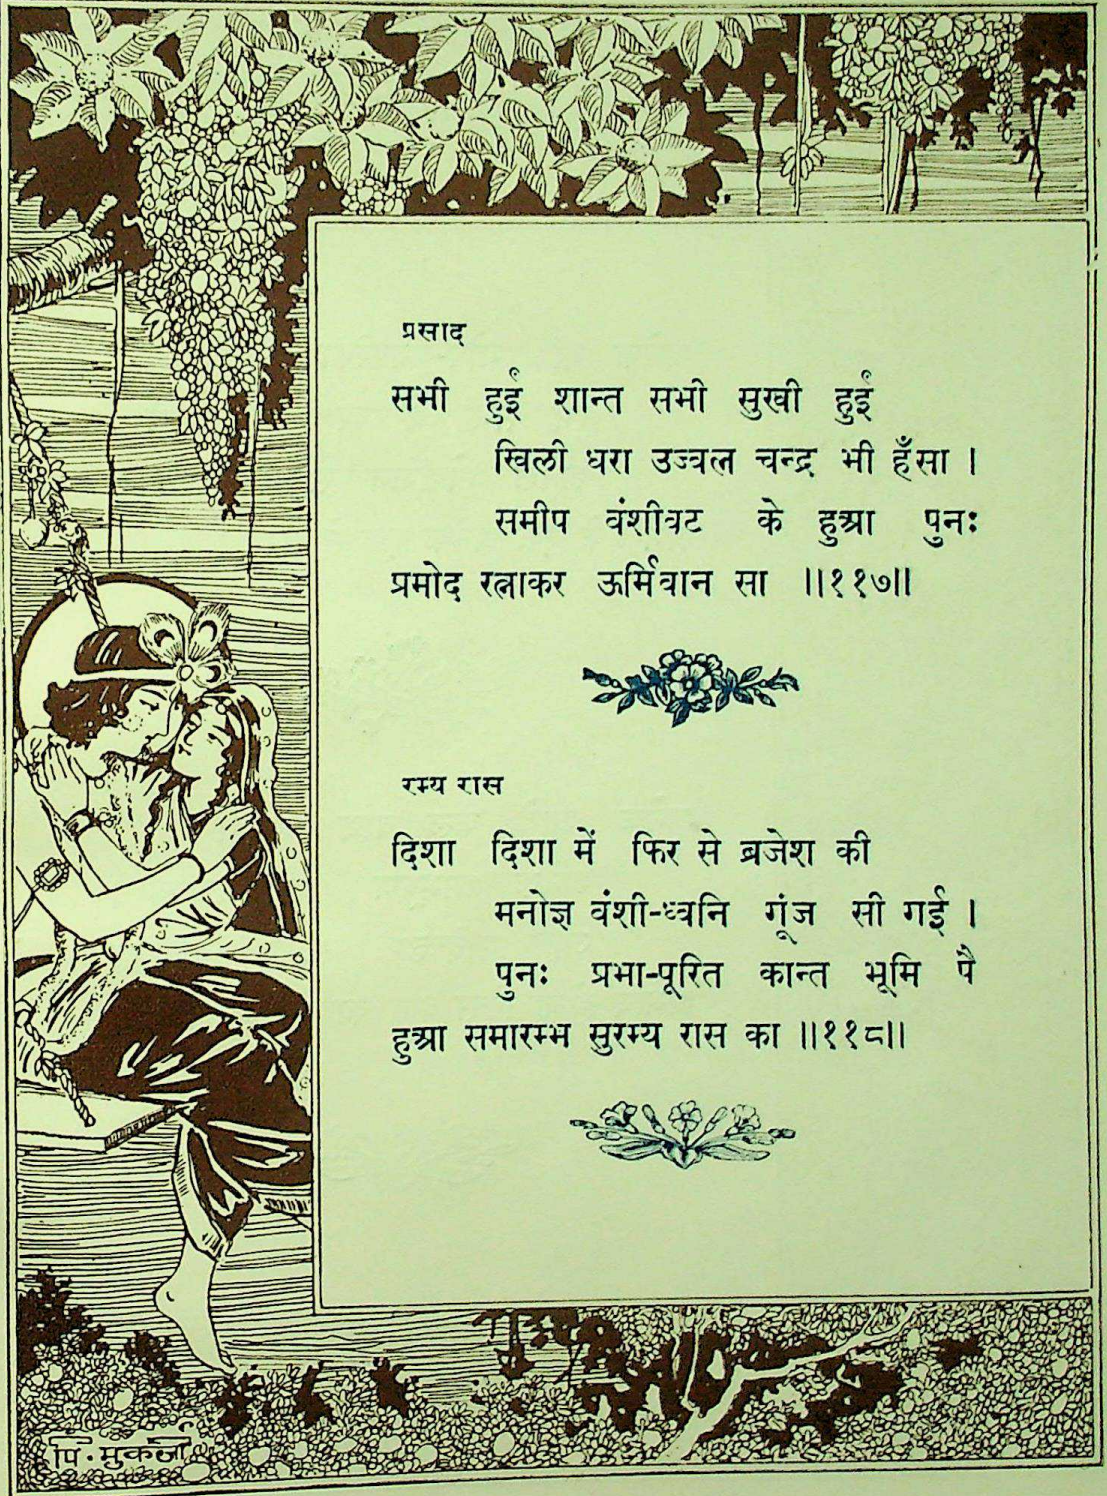 प्रसाद
सभी हुईं शान्त सभी सुखी हुईं
खिली धरा उज्वल चन्द्र भी हँसा ।
समीप वंशीवट के हुआ पुनः
प्रमोद रत्नाकर ऊर्मिवान सा ॥११७॥
रम्य रास
दिशा दिशा में फिर से ब्रजेश की
मनोज्ञ वंशी-ध्वनि गूंज सी गई ।
पुनः प्रभा-पूरित कान्त भूमि पै
हुआ समारम्भ सुरम्य रास का ॥११८॥
पि. मुकर्जी